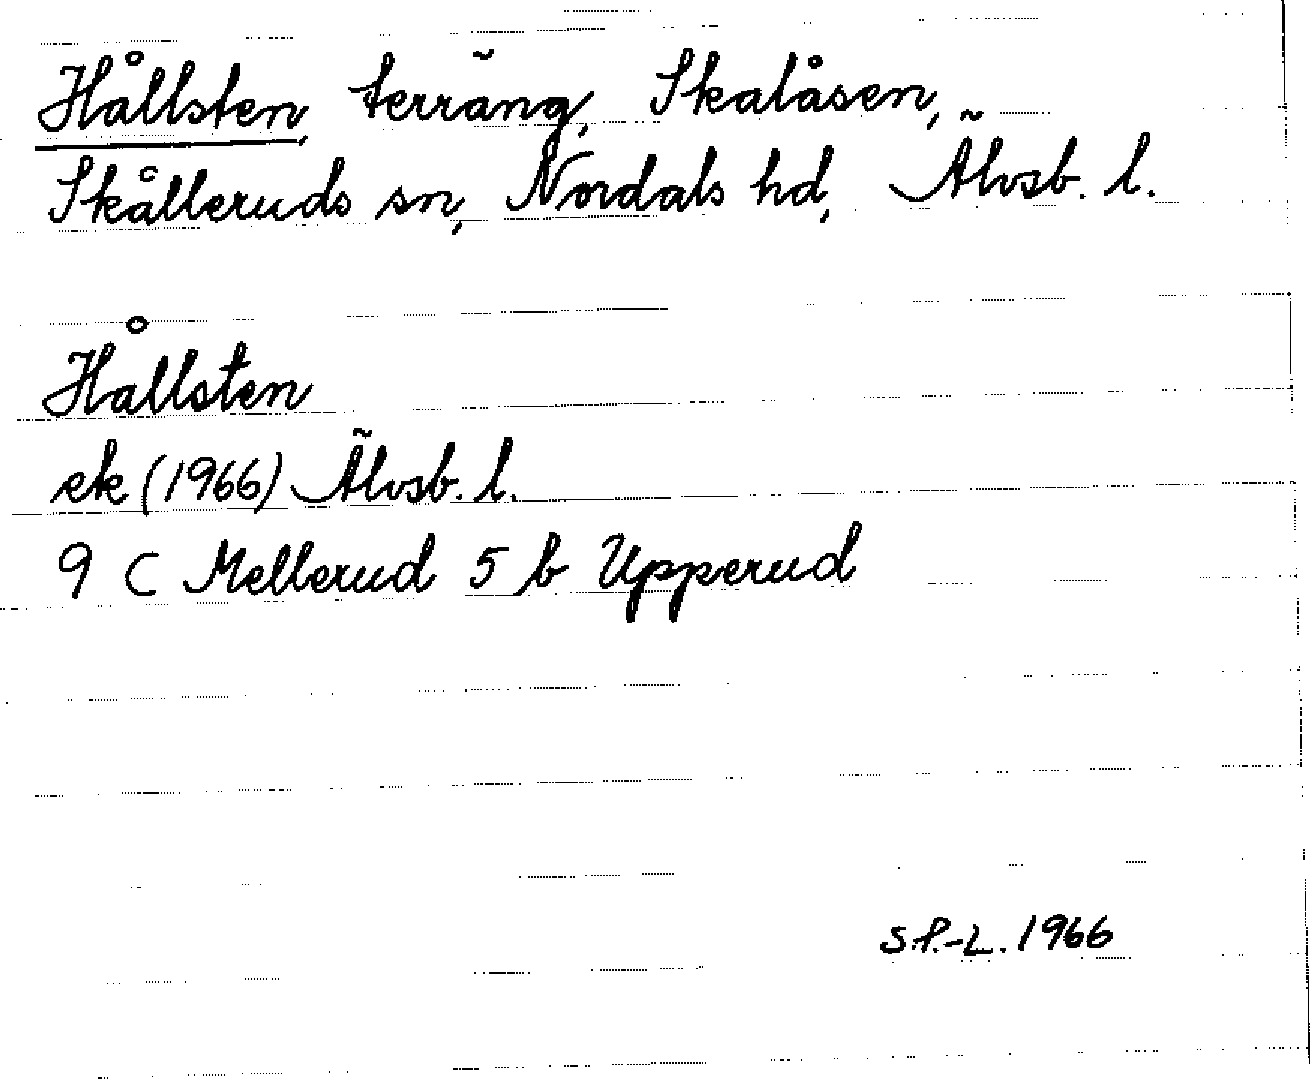 Hållsten, terräng, Skalåsen,
Skålleruds sn, Nordals hd, Älvsb. l.
Hållsten
ek (1966) Älvsb. l.
9 C Mellerud 5 b Upperud
S.P.-L. 1966